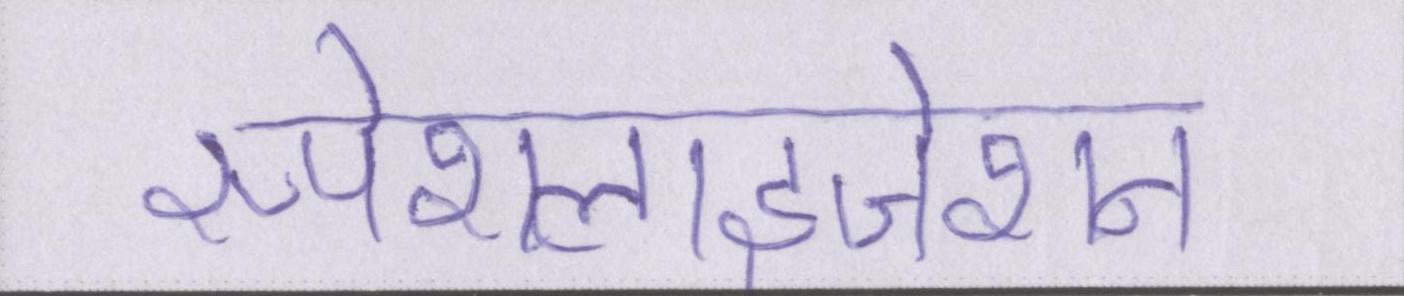 स्पेशलाइजेशन